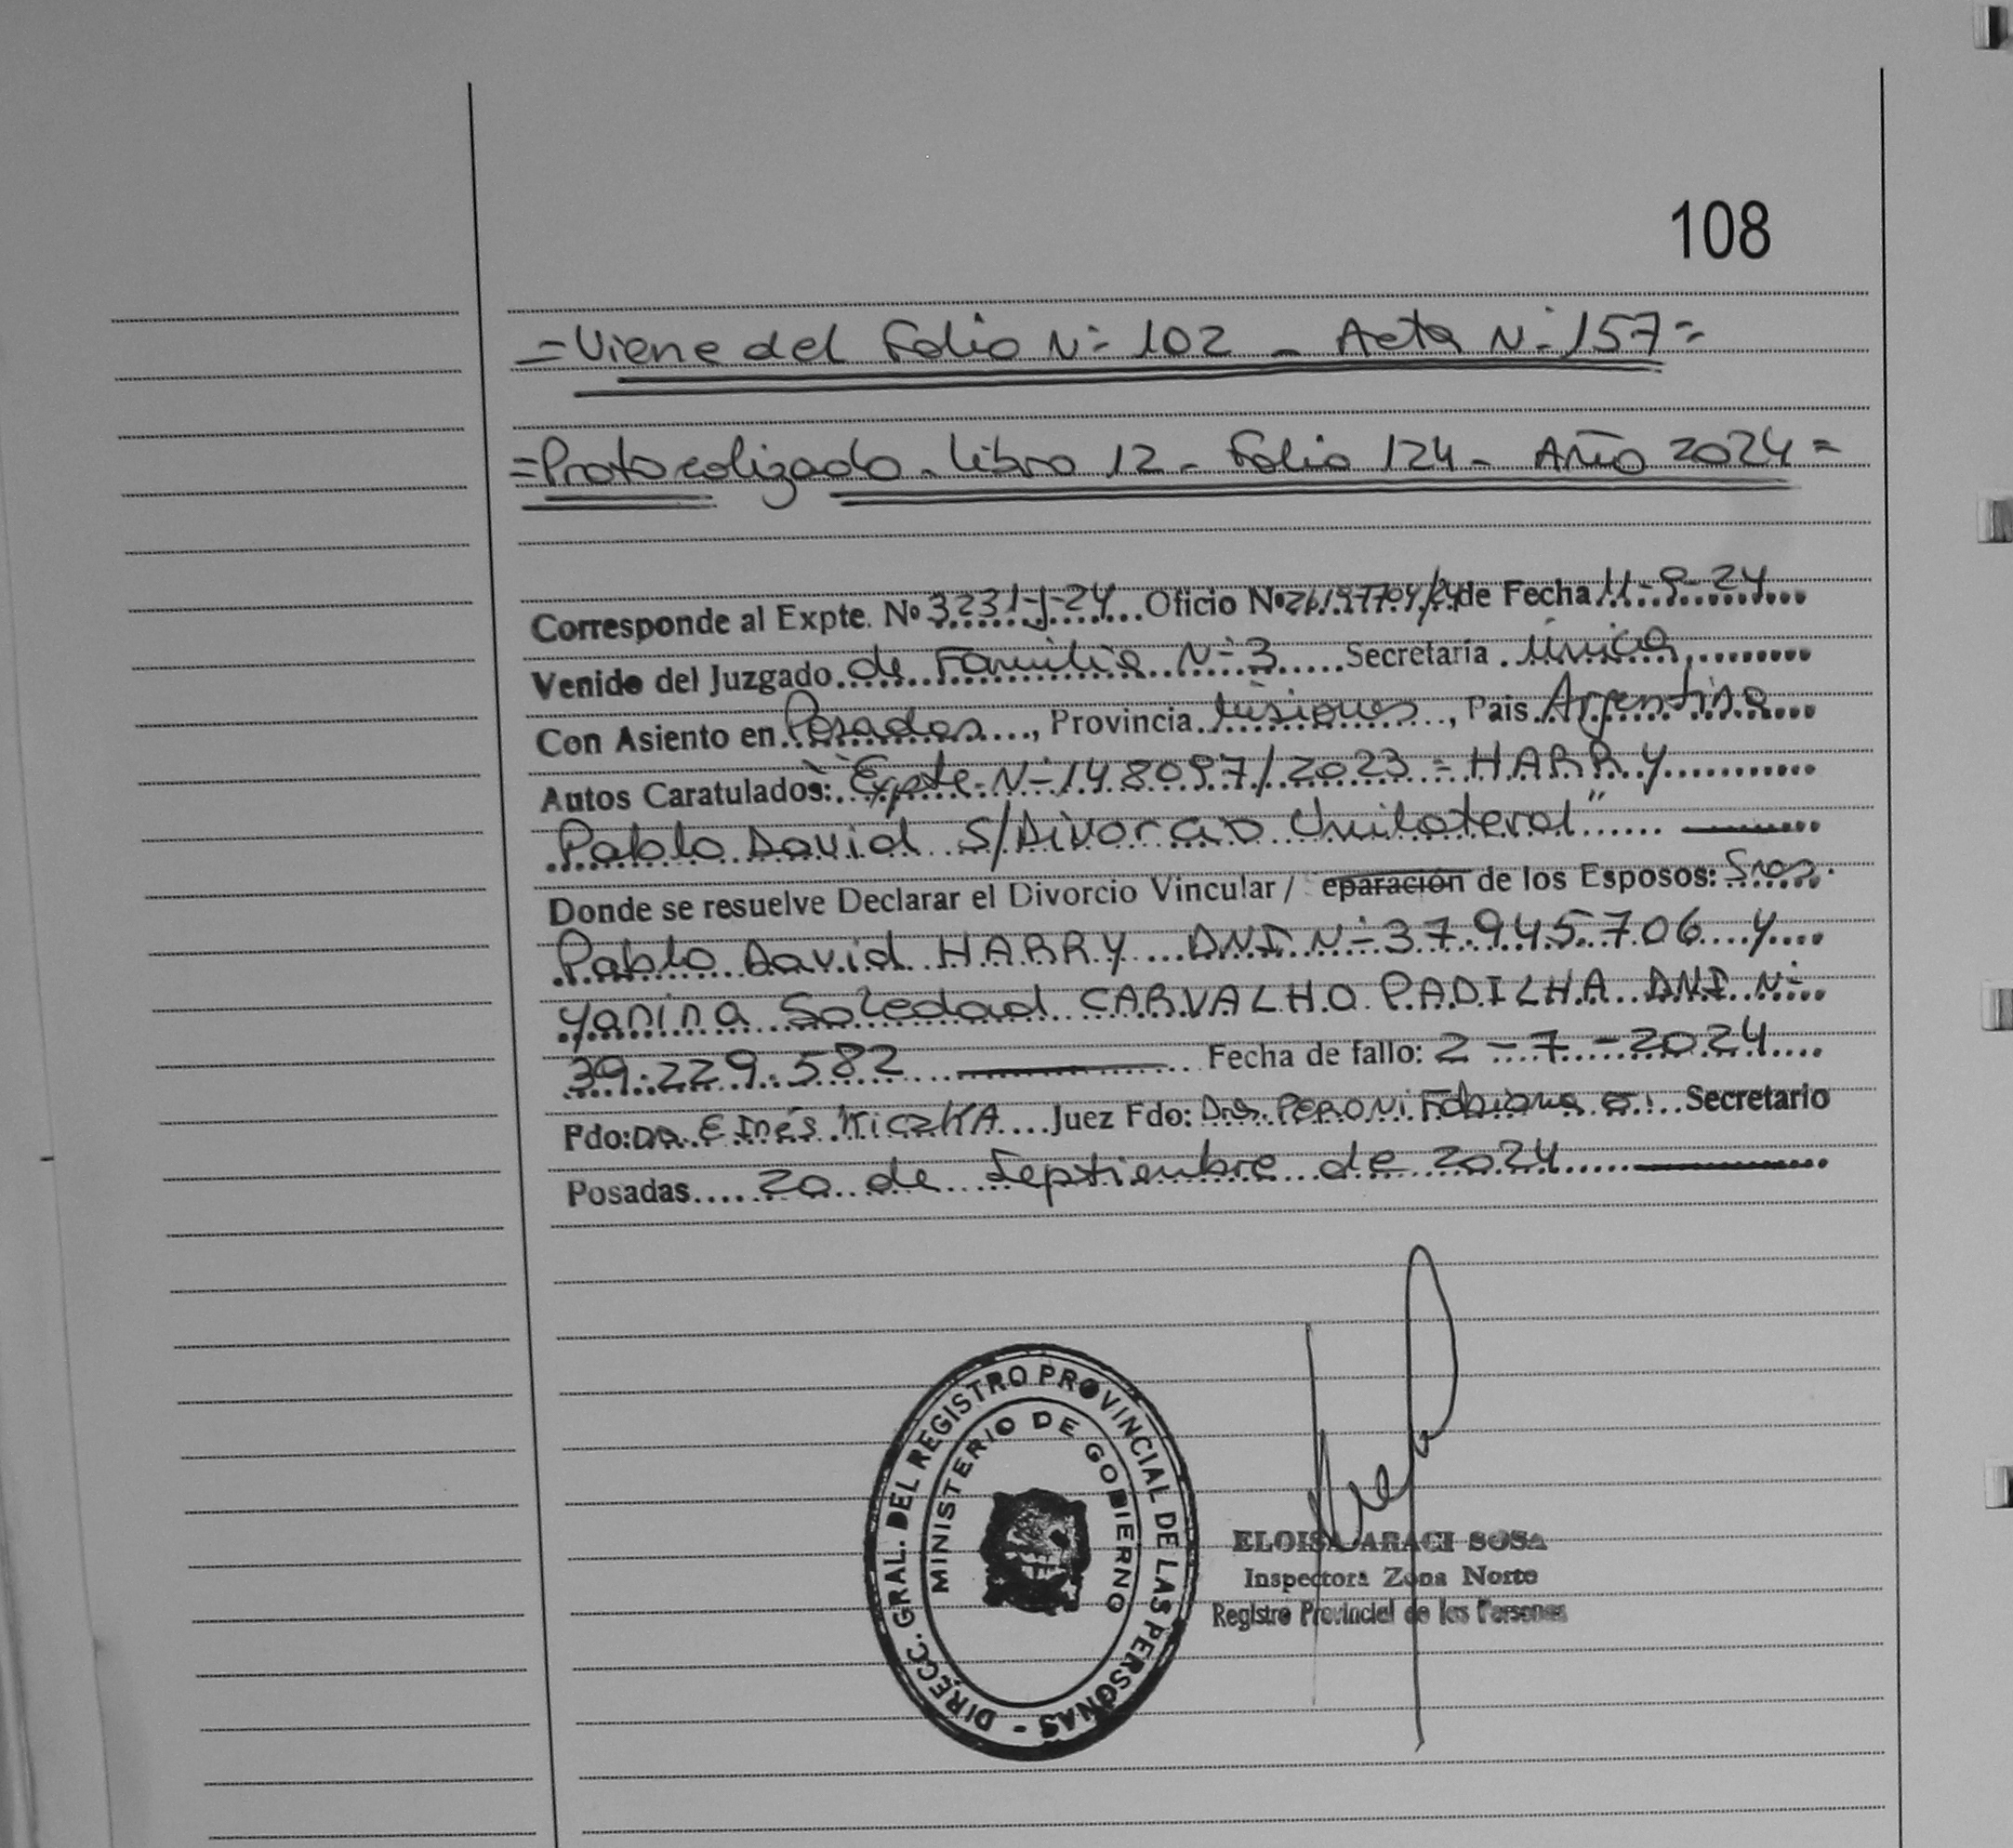 108
=Viene del Folio N° 102 - Acta N° 157=
=Protocolizado - Libro 12 - Folio 124 - Año 2024=
Corresponde al Expte. Nº 3231-J-24 Oficio Nº de Fecha 11-9-24
Venido del Juzgado de Familia N° 3 Secretaría Única
Con Asiento en Posadas, Provincia Misiones, Pais Argentina
Autos Caratulados: "Expte. N° 148097/2023 = HARRY
Pablo David S/Divorcio Unilateral"
Donde se resuelve Declarar el Divorcio Vincular / eparación de los Esposos: Sres.
Pablo David HARRY DNI N° 37.945.706 y
Yanina Soledad CARVALHO PADILHA DNI N°
39.229.582 Fecha de fallo: 2-7-2024
Fdo: DRA. E Inés KiczKA Juez Fdo: Dra. PERONI Fabiana E. Secretario
Posadas 20 de Septiembre de 2024
DIRECC. GRAL. DEL REGISTRO PROVINCIAL DE LAS PERSONAS -
MINISTERIO DE GOBIERNO
ELOISA ARACI SOSA
Inspectora Zona Norte
Registro Provincial de las Personas